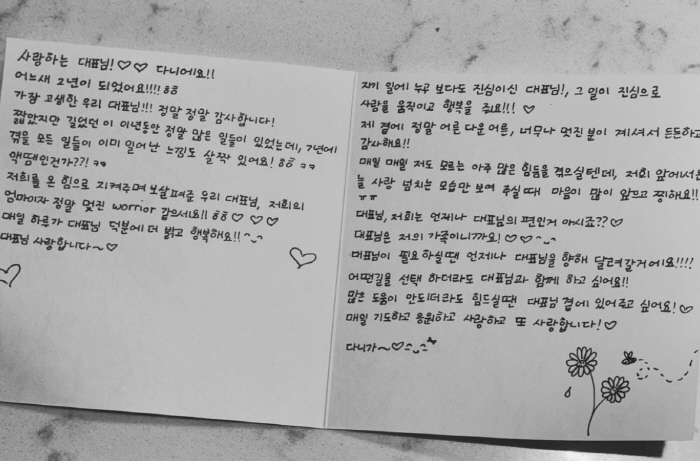 사랑하는 대표님!♡♡ 다니에요!!
어느새 2년이 되었어요!!!! ㅎㅎ
가장 고생한 우리 대표님!!! 정말 정말 감사합니다!
짧았지만 길었던 이 이년동안 정말 많은 일들이 있었는데, 7년에
겪을 모든 일들이 이미 일어난 느낌도 살짝 있어요! ㅎㅎ ㅋㅋ
액땜인건가??! ㅋㅋ
저희를 온 힘으로 지켜주며 보살펴준 우리 대표님, 저희의
엄마이자 정말 멋진 worrior 같으세요!! ㅎㅎ♡ ♡ ♡
매일 하루가 대표님 덕분에 더 밝고 행복해요!! ^_^
대표님 사랑합니다~♡
자기 일에 누구 보다도 진심이신 대표님!, 그 일이 진심으로
사람을 움직이고 행복을 줘요!!! ♡
제 곁에 정말 어른 다운 어른, 너무나 멋진 분이 계셔서 든든하고
감사해요!!
매일 매일 저도 모르는 아주 많은 힘듦을 겪으실텐데, 저희 앞에서는
늘 사랑 넘치는 모습만 보여 주실때 마음이 많이 앞으고 찡해요!!
ㅠㅠ
대표님, 저희는 언제나 대표님의 편인거 아시죠??♡
대표님은 저의 가족이니까요! ♡♡^_^
대표님이 필요하실땐 언제나 대표님을 향해 달려갈거에요!!!!
어떤길을 선택 하더라도 대표님과 함께 하고 싶어요!!
많은 도움이 안되더라도 힘드실땐 대표님 곁에 있어주고 싶어요!♡
매일 기도하고 응원하고 사랑하고 또 사랑합니다!♡
다니가~♡^_^